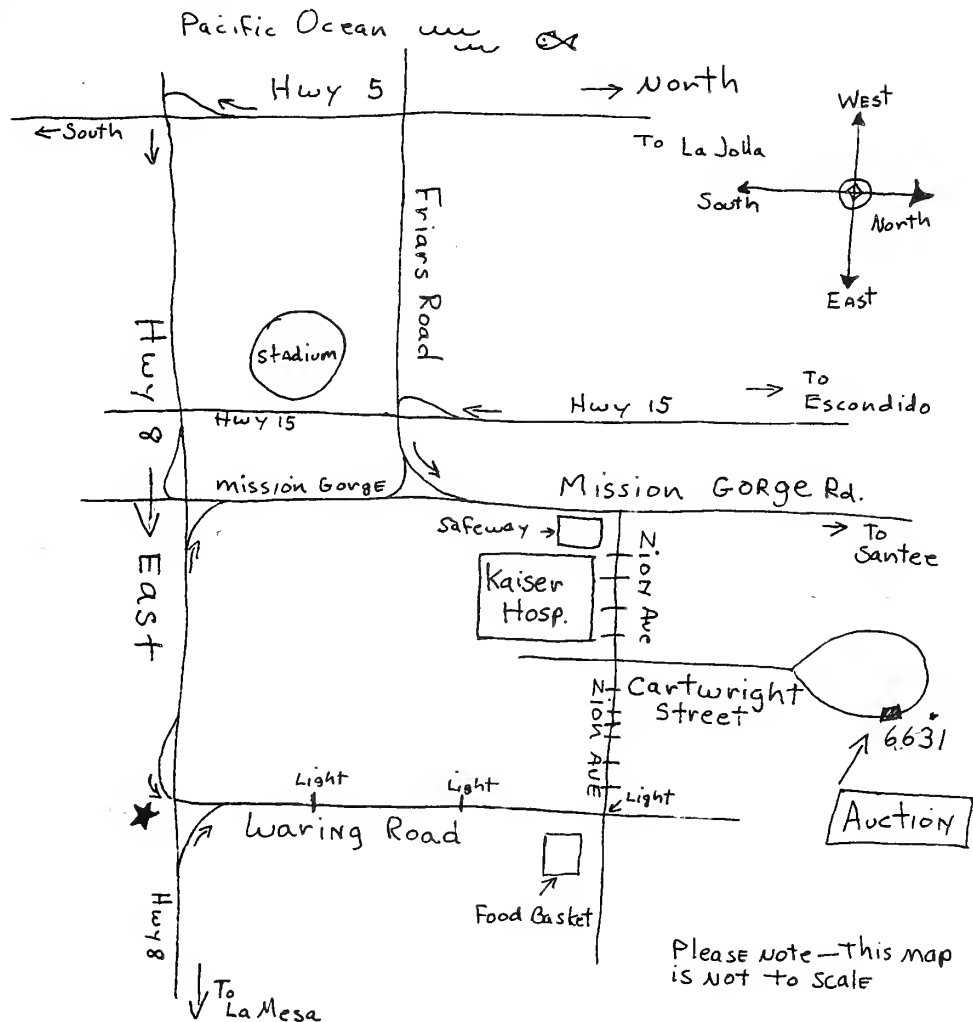 Pacific Ocean
Hwy 5
→ North
← South
To La Jolla
West
South
North
East
Friars Road
Stadium
Hwy 8 → East
Hwy 15
Hwy 15
→ To
Escondido
Mission Gorge
Mission Gorge Rd.
→ To
Santee
Safeway →
Zion Ave
Kaiser
Hosp.
Cartwright
Street
Zion Ave
6631
Auction
Light
Light
Light
★
Waring Road
Food Basket
Hwy 8
To
La Mesa
Please note — This map
is not to scale